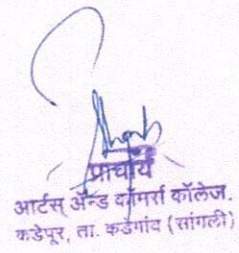 प्राचार्य
आर्टस् ॲन्ड कॉमर्स कॉलेज.
कडेपूर, ता. कडेगांव (सांगली)